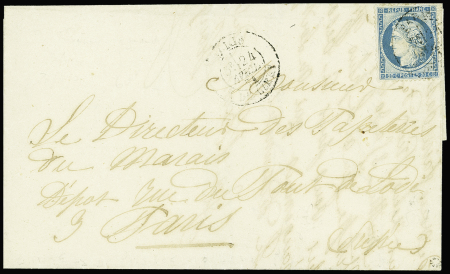 REPUB. FRANC.
Monsieur
Le Directeur des Papeteries
du Marais
Dépot rue du Pont de Lodi
3 Paris